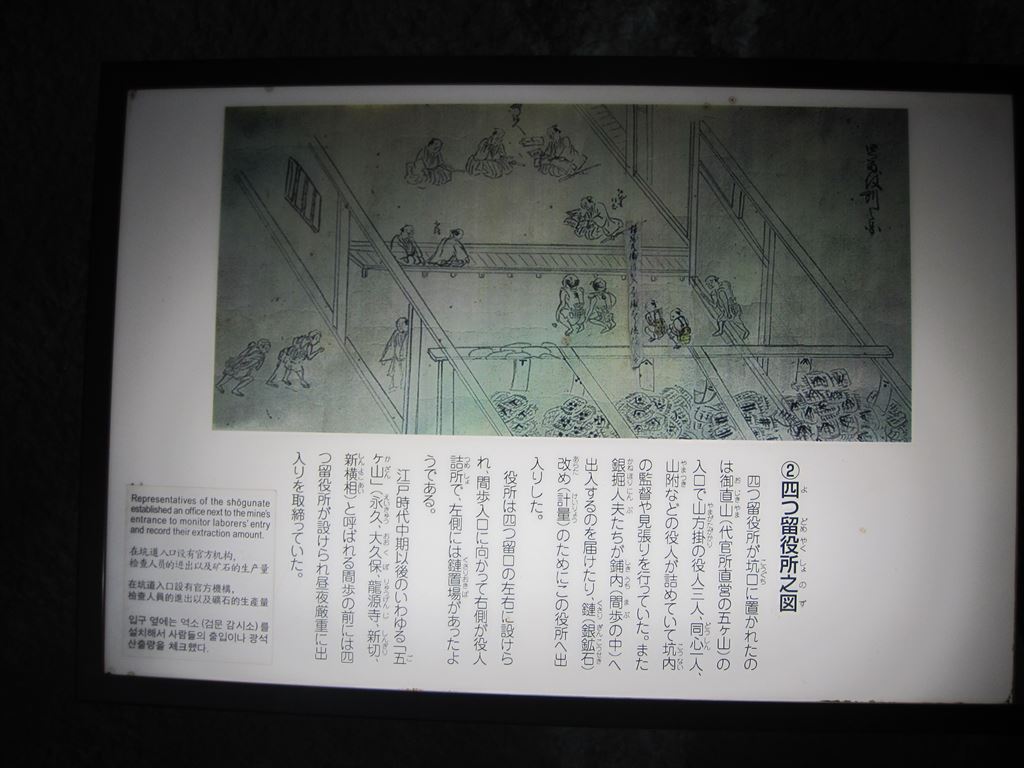 ②四つ留役所之図
四つ留役所が坑口に置かれたの
は御直山（代官所直営の五ヶ山）の
入口で山方掛の役人三人、同心二人、
山附などの役人が詰めていて坑内
の監督や見張りを行っていた。また
銀掘人夫たちが鋪内（間歩の中）へ
出入するのを届けたり、鏈（銀鉱石）
改め（計量）のためにこの役所へ出
入りした。
役所は四つ留口の左右に設けら
れ、間歩入口に向かって右側が役人
詰所で、左側には鏈置場があったよ
うである。
江戸時代中期以後のいわゆる「五
ヶ山」（永久、大久保、龍源寺、新切、
新横相）と呼ばれる間歩の前には四
つ留役所が設けられ昼夜厳重に出
入りを取締っていた。
Representatives of the shōgunate
established an office next to the mine's
entrance to monitor laborers' entry
and record their extraction amount.
在坑道入口设有官方机构，
检查人员的进出以及矿石的生产量
在坑道入口設有官方機構，
檢查人員的進出以及礦石的生產量
입구 옆에는 역소 (검문 감시소) 를
설치해서 사람들의 출입이나 광석
산출량을 체크했다.